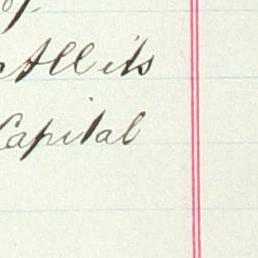 All its
Capital